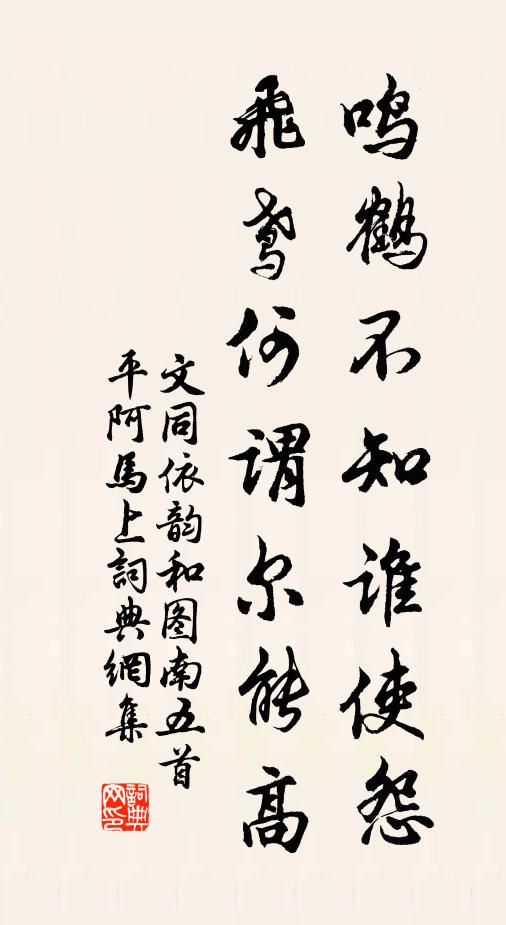 鸣鹤不知谁使怨
飛鸢何谓尔能高
文同依韵和图南五首
平阿馬上詞典網集
詞典网印